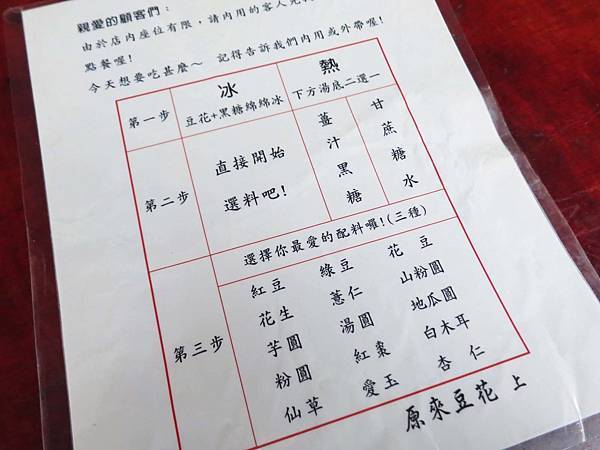 親愛的顧客們：
由於店內座位有限，請內用的客人先
點餐喔！
今天想要吃甚麼～ 記得告訴我們內用或外帶喔！
第一步 冰 熱
豆花+黑糖綿綿冰 下方湯底二選一
第二步 直接開始 選料吧！ 薑汁黑糖 甘蔗糖水
第三步 選擇你最愛的配料囉！(三種)
紅豆 綠豆 花豆
花生 薏仁 山粉圓
芋圓 湯圓 地瓜圓
粉圓 紅棗 白木耳
仙草 愛玉 杏仁
原來豆花 上